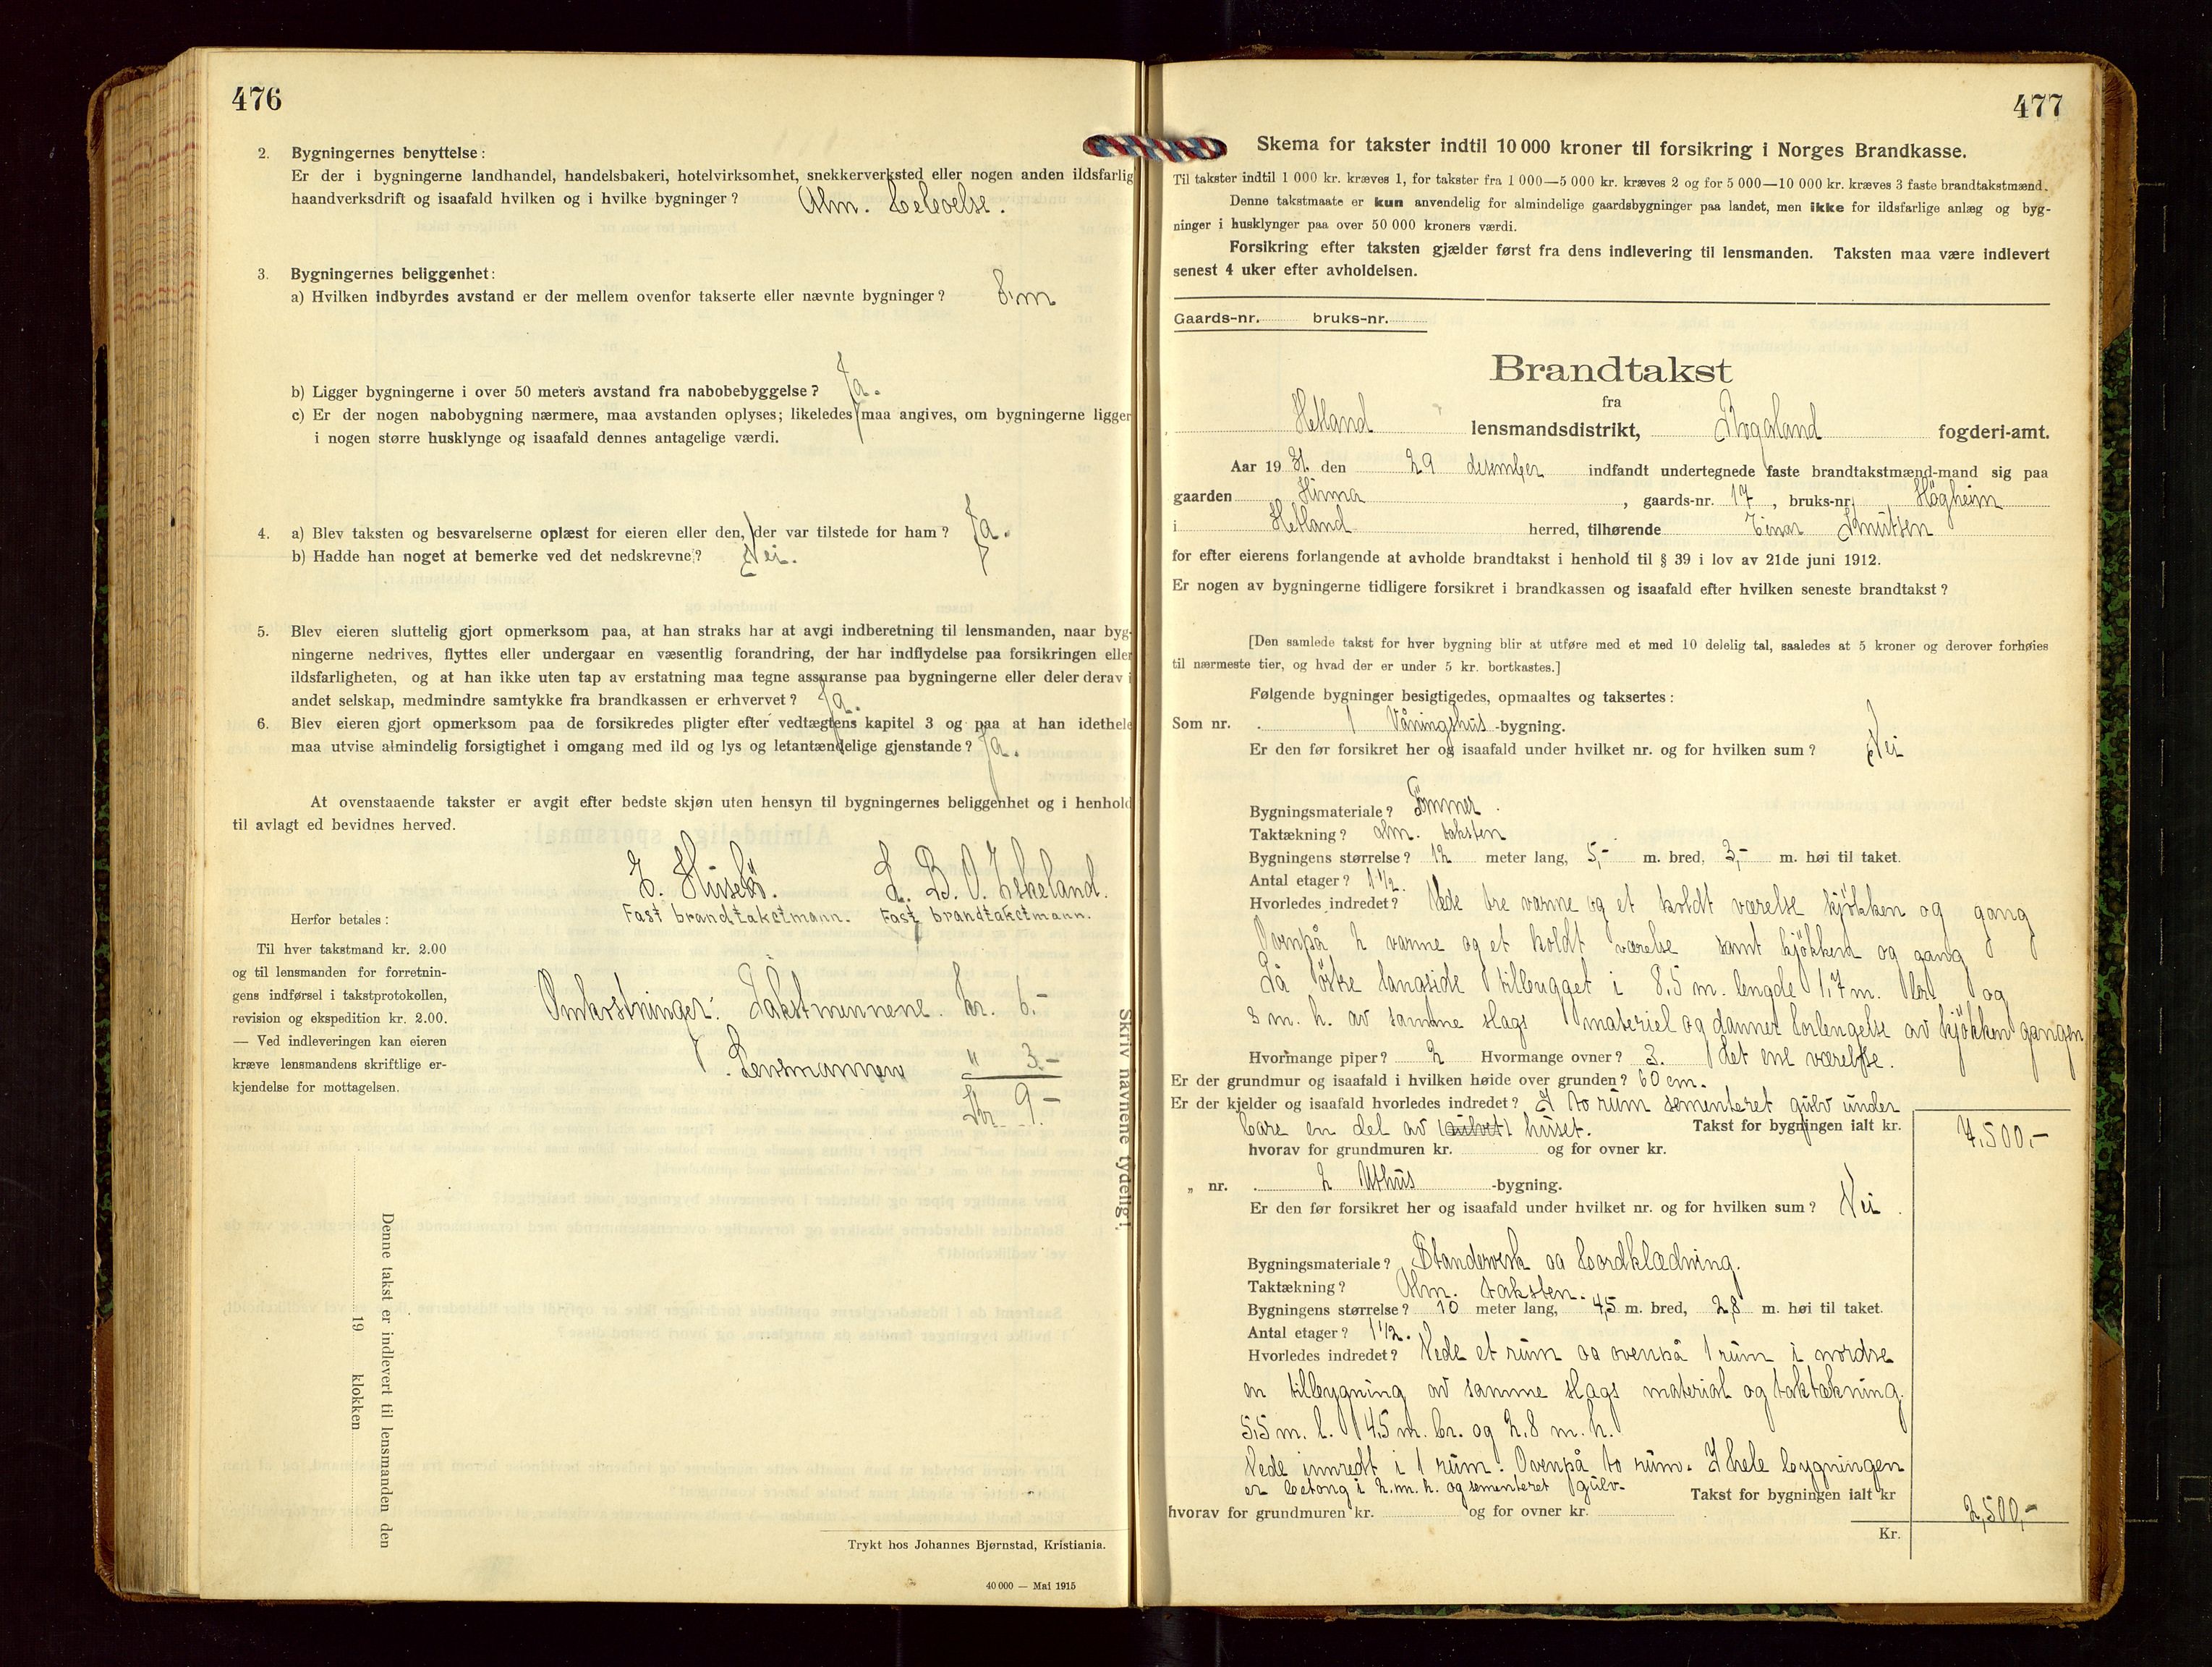 476
2. Bygningernes benyttelse:
Er der i bygningerne landhandel, handelsbakeri, hotelvirksomhet, snekkerverksted eller nogen anden ildsfarlig
haandverksdrift og isaafald hvilken og i hvilke bygninger? Alm. beboelse.
3. Bygningernes beliggenhet:
a) Hvilken indbyrdes avstand er der mellem ovenfor takserte eller nævnte bygninger? 8 m
b) Ligger bygningerne i over 50 meters avstand fra nabobebyggelse? Ja.
c) Er der nogen nabobygning nærmere, maa avstanden oplyses; likeledes maa angives, om bygningerne ligger
i nogen større husklynge og isaafald dennes antagelige værdi.
4. a) Blev taksten og besvarelserne oplæst for eieren eller den, der var tilstede for ham? Ja.
b) Hadde han noget at bemerke ved det nedskrevne? Nei.
5. Blev eieren sluttelig gjort opmerksom paa, at han straks har at avgi indberetning til lensmanden, naar byg-
ningerne nedrives, flyttes eller undergaar en væsentlig forandring, der har indflydelse paa forsikringen eller
ildsfarligheten, og at han ikke uten tap av erstatning maa tegne assuranse paa bygningerne eller deler derav i
andet selskap, medmindre samtykke fra brandkassen er erhvervet? Ja.
6. Blev eieren gjort opmerksom paa de forsikredes pligter efter vedtægtens kapitel 3 og paa at han idethele
maa utvise almindelig forsigtighet i omgang med ild og lys og letantændelige gjenstande? Ja.
At ovenstaaende takster er avgit efter bedste skjøn uten hensyn til bygningernes beliggenhet og i henhold
til avlagt ed bevidnes herved.
E. Husebø. L. B. O. Eskeland.
Fast brandtakstmann. Fast brandtakstmann.
Herfor betales:
Til hver takstmand kr. 2.00
og til lensmanden for forretnin-
gens indførsel i takstprotokollen,
revision og ekspedition kr. 2.00.
— Ved indleveringen kan eieren
kræve lensmandens skriftlige er-
kjendelse for mottagelsen.
Omkostninger: Takstmennene kr. 6.-
Lensmannen " 3.-
Kr 9.-
Skriv navnene tydelig!
Denne takst er indlevert til lensmanden den
19 klokken
Trykt hos Johannes Bjørnstad, Kristiania.
40 000 — Mai 1915
477
Skema for takster indtil 10 000 kroner til forsikring i Norges Brandkasse.
Til takster indtil 1 000 kr. kræves 1, for takster fra 1 000—5 000 kr. kræves 2 og for 5 000—10 000 kr. kræves 3 faste brandtakstmænd.
Denne takstmaate er kun anvendelig for almindelige gaardsbygninger paa landet, men ikke for ildsfarlige anlæg og byg-
ninger i husklynger paa over 50 000 kroners værdi.
Forsikring efter taksten gjælder først fra dens indlevering til lensmanden. Taksten maa være indlevert
senest 4 uker efter avholdelsen.
Gaards-nr. bruks-nr.
Brandtakst
fra
Hetland lensmandsdistrikt, Rogaland fogderi-amt.
Aar 1931 den 29 desember indfandt undertegnede faste brandtakstmænd-mand sig paa
gaarden Hinna, gaards-nr. 17, bruks-nr. Høgheim
i Hetland herred, tilhørende Einar Knutsen
for efter eierens forlangende at avholde brandtakst i henhold til § 39 i lov av 21de juni 1912.
Er nogen av bygningerne tidligere forsikret i brandkassen og isaafald efter hvilken seneste brandtakst?
[Den samlede takst for hver bygning blir at utføre med et med 10 delelig tal, saaledes at 5 kroner og derover forhøies
til nærmeste tier, og hvad der er under 5 kr. bortkastes.]
Følgende bygninger besigtigedes, opmaaltes og taksertes:
Som nr. 1 Våningshus -bygning.
Er den før forsikret her og isaafald under hvilket nr. og for hvilken sum? Nei
Bygningsmateriale? Tømmer.
Taktækning? alm. taksten
Bygningens størrelse? 12 meter lang, 5,- m. bred, 3,- m. høi til taket.
Antal etager? 1 1/2.
Hvorledes indredet? Nede tre varme og et koldt værelse kjøkken og gang
Ovenpå 2 varme og et koldt værelse samt kjøkken og gang
På østre langside tilbygget i 8,5 m. lengde 1,7 m. br. og
3 m. h. av samme slags materiel og danner forlengelse av kjøkken gangen
Hvormange piper? 2 Hvormange ovner? 3. det ene værelse.
Er der grundmur og isaafald i hvilken høide over grunden? 60 cm.
Er der kjelder og isaafald hvorledes indredet? I to rum sementeret gulv under
bare en del av (gulvet) huset. Takst for bygningen ialt kr. 7,500,-
hvorav for grundmuren kr. og for ovner kr.
„ nr. 2 Uthus -bygning.
Er den før forsikret her og isaafald under hvilket nr. og for hvilken sum? Nei.
Bygningsmateriale? Standerverk og bordklædning.
Taktækning? Alm. taksten.
Bygningens størrelse? 10 meter lang, 4,5 m. bred, 2,8 m. høi til taket.
Antal etager? 1 1/2.
Hvorledes indredet? Nede et rum og ovenpå 1 rum i nordre
en tilbygning av samme slags material og taktækning.
5,5 m. l. 4,5 m. br. og 2,8 m. h.
Nede innredt i 1 rum. Ovenpå to rum. I hele bygningen
er betong i 2. m. h. og sementeret gulv. Takst for bygningen ialt kr
hvorav for grundmuren kr. og for ovner kr. 2,500,-
Kr.